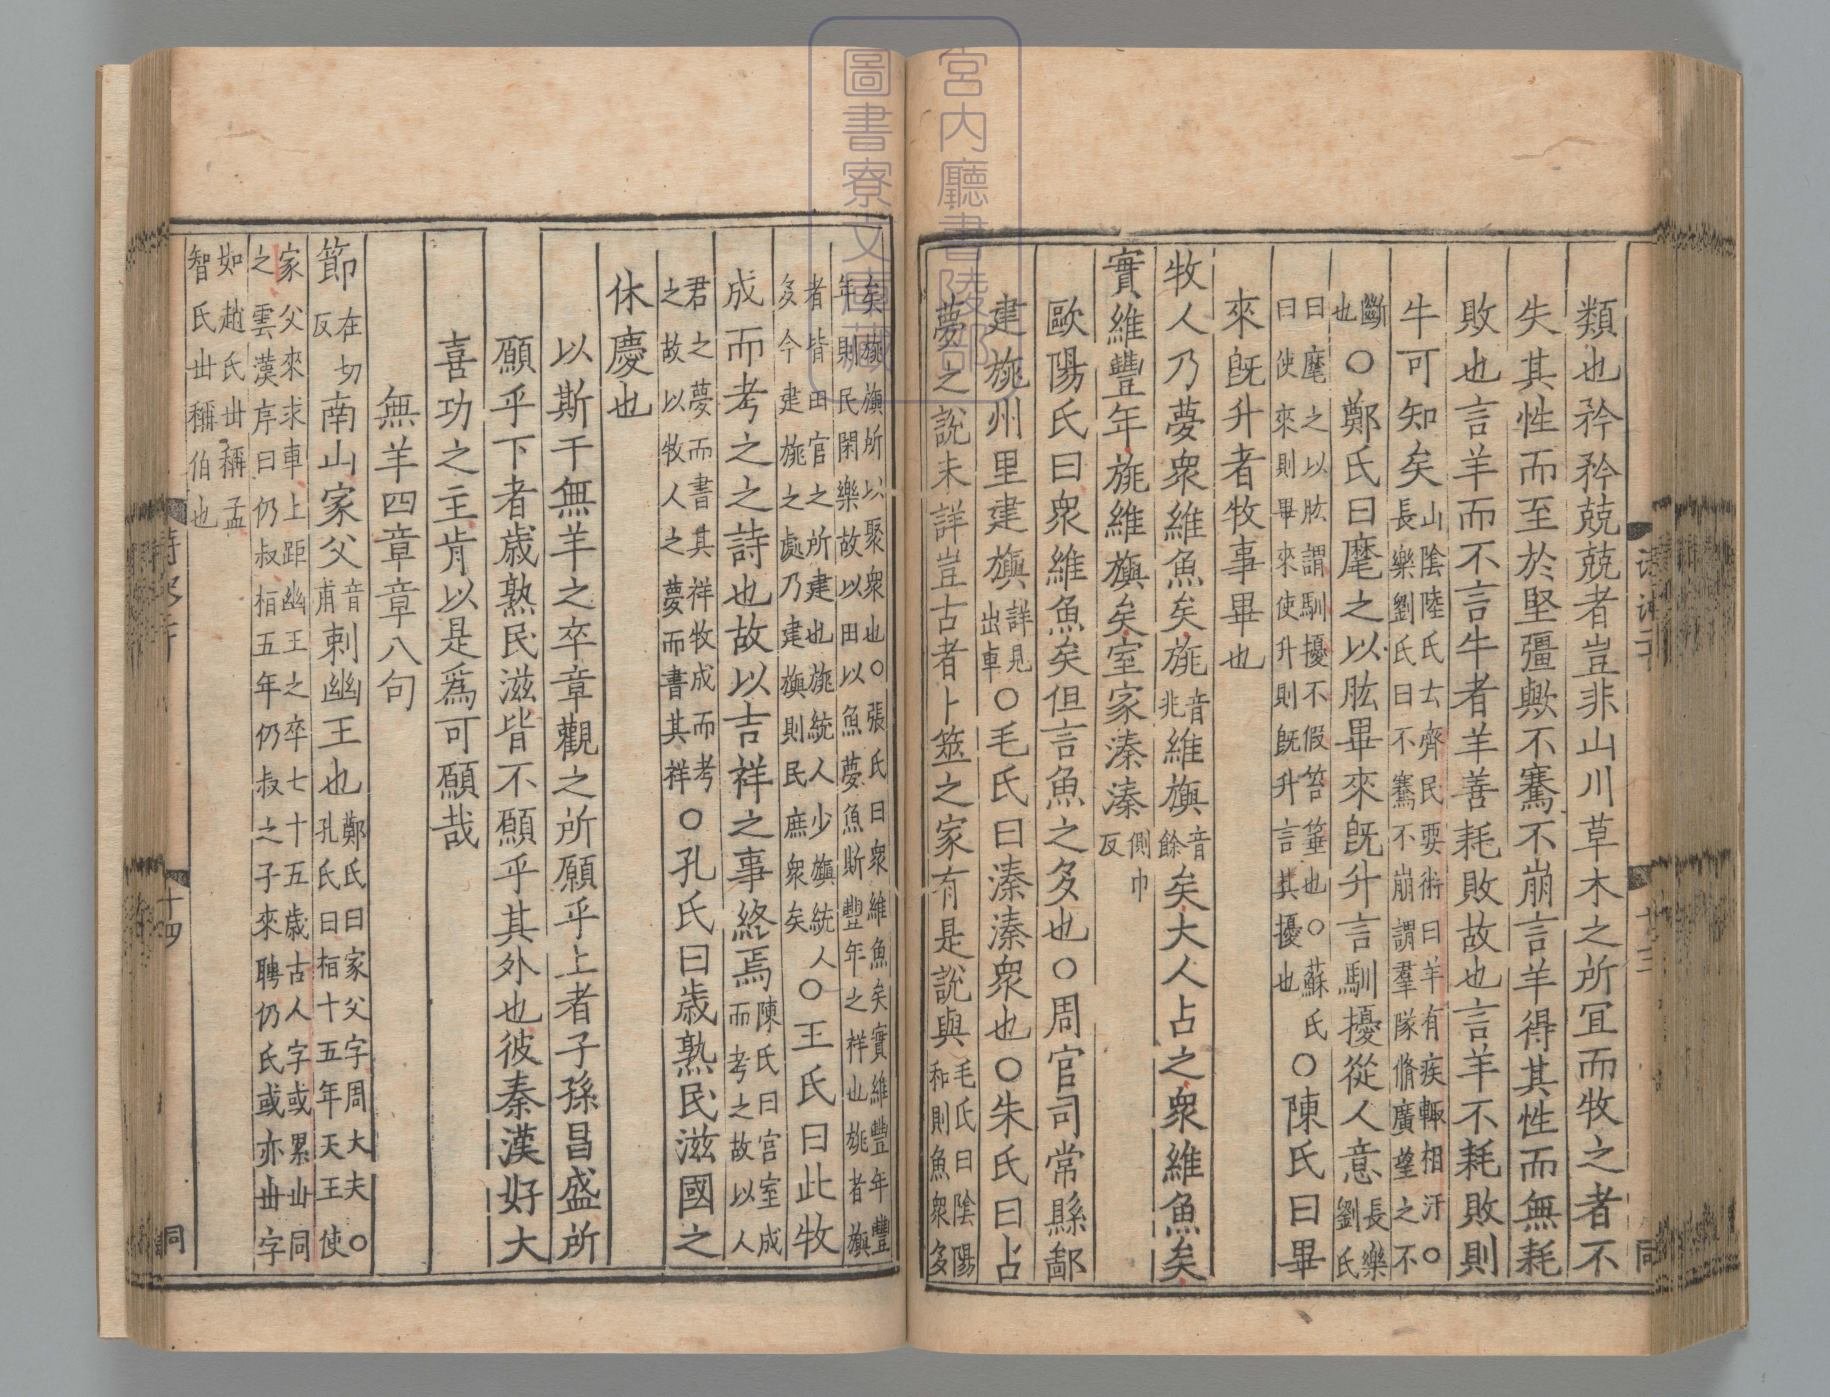 類也矜矜兢兢者豈非山川草木之所宜而牧之者不
失其性而至於堅彊歟不騫不崩言羊得其性而無耗
敗也言羊而不言牛者羊善耗敗故也言羊不耗敗則
牛可知矣山陰陸氏云齊民要術曰羊有疾輙相汙○
長樂劉氏曰不騫不崩謂羣隊脩廣望之不
斷也○鄭氏曰麾之以肱畢來旣升言馴擾從人意長樂劉氏
曰麾之以肱謂馴擾不假笞箠也○蘇氏
曰使來則畢來使升則旣升言其擾也○陳氏曰畢
來旣升者牧事畢也
牧人乃夢衆維魚矣旐音兆維旟音餘矣大人占之衆維魚矣
實維豐年旐維旟矣室家溱溱側巾反
歐陽氏曰衆維魚矣但言魚之多也○周官司常縣鄙
建旐州里建旟詳見出車○毛氏曰溱溱衆也○朱氏曰占
夢之說未詳豈古者卜筮之家有是說與毛氏曰陰陽和則魚衆多
矣旐旟所以聚衆也○張氏曰衆維魚矣實維豐年豐
年則民閑樂故以田以魚夢魚斯豐年之祥也旐者旟
者皆田官之所建也旐統人少旟統人
多今建旐之處乃建旟則民庶衆矣○王氏曰此牧
成而考之之詩也故以吉祥之事終焉陳氏曰宫室成而考之故以人
君之夢而書其祥牧成而考
之故以牧人之夢而書其祥○孔氏曰歲熟民滋國之
休慶也
以斯干無羊之卒章觀之所願乎上者子孫昌盛所
願乎下者歲熟民滋皆不願乎其外也彼秦漢好大
喜功之主肯以是爲可願哉
無羊四章章八句
節在切反南山家父音甫刺幽王也鄭氏曰家父字周大夫○
孔氏曰桓十五年天王使
家父來求車上距幽王之卒七十五歲古人字或累世同
之雲漢序曰仍叔桓五年仍叔之子來聘仍氏或亦世字
如趙氏世稱孟
智氏世稱伯也
十四
同
同
宮内廳書陵部
圖書寮文庫藏